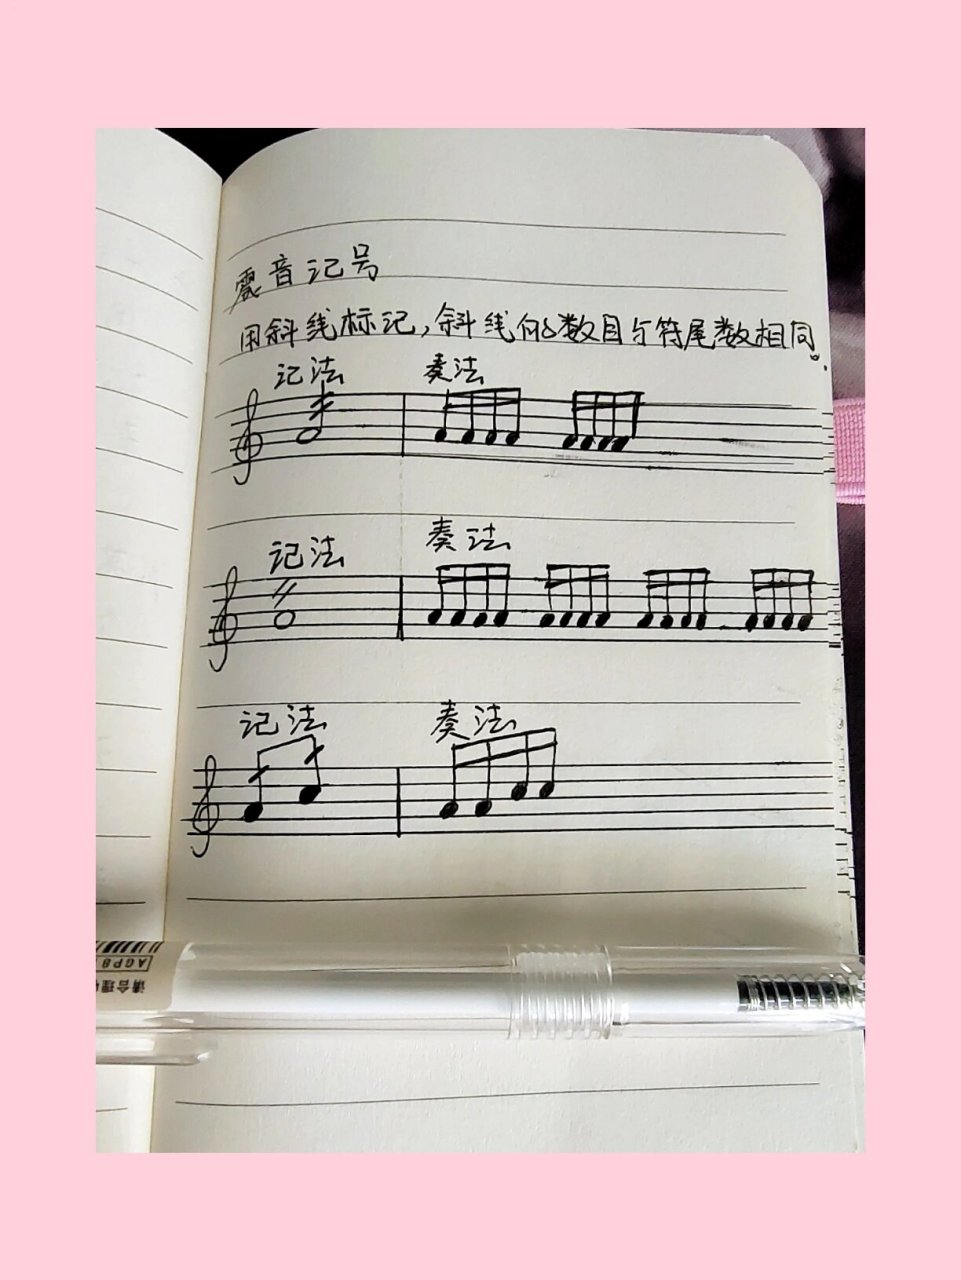 震音记号
用斜线标记,斜线的数目与符尾数相同。
记法 奏法
记法 奏法
记法 奏法
AGPB
请合理